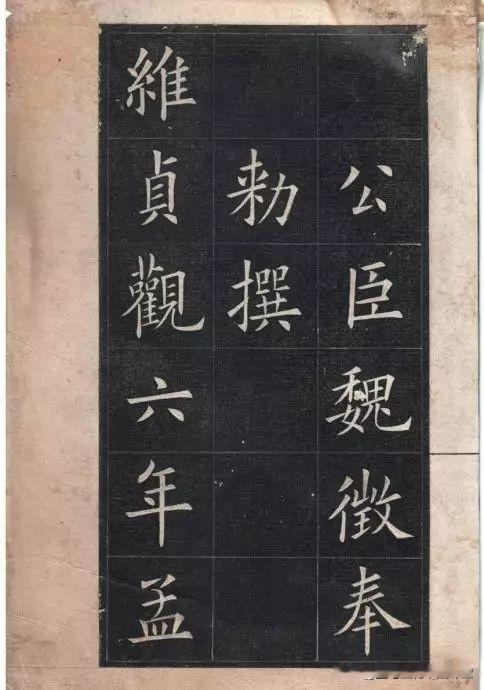 公臣魏徵奉
勑撰
維貞觀六年孟